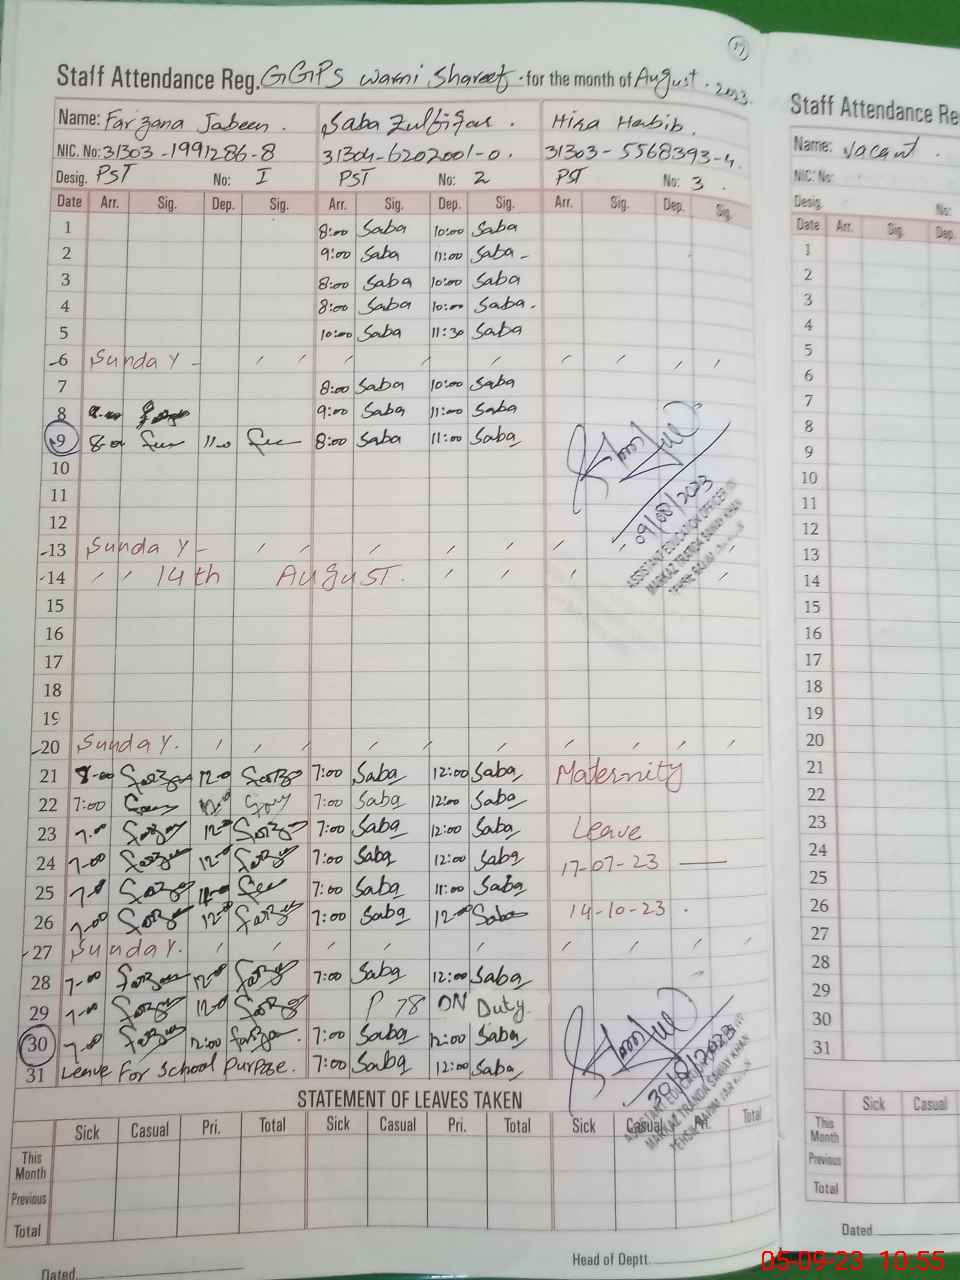 17
Staff Attendance Reg. GGPS Warni Shareef. for the month of August. 2023.
Name: Farzana Jabeen. Saba Zulfiqar. Hina Habib.
NIC. No: 31303-1991286-8 31304-6202001-0. 31303-5568393-4
Desig. PST No: I PST No: 2 PST No: 3.
Date Arr. Sig. Dep. Sig. Arr. Sig. Dep. Sig. Arr. Sig. Dep. Sig.
1 8:00 Saba 10:00 Saba
2 9:00 Saba 11:00 Saba -
3 8:00 Saba 10:00 Saba
4 8:00 Saba 10:00 Saba.
5 10:00 Saba 11:30 Saba
-6 Sunday -
7 8:00 Saba 10:00 Saba
8 9:00 Saba 11:00 Saba
9 8-0 11-0 8:00 Saba 11:00 Saba
10
11
12
09/08/2023
ASSISTANT EDUCATION OFFICER
MARKAZ TRANDA SAWAY KHAN
-13 Sunday -
-14 " " 14th August.
15
16
17
18
19
-20 Sunday.
21 8-00 Farzan 12-0 Farza 7:00 Saba 12:00 Saba Maternity
22 7:00 12:0 7:00 Saba 12:00 Saba
23 7.00 Farzan 12-0 Farza 7:00 Saba 12:00 Saba Leave
24 7-00 Farzan 12-0 Farza 7:00 Saba 12:00 Saba 17-07-23 —
25 7-0 Farzan 7:00 Saba 11:00 Saba
26 7-00 Farzan 12-0 Farza 7:00 Saba 12-00 Saba 14-10-23.
-27 Sunday.
28 7-00 Farzan 12-0 Farza 7:00 Saba 12:00 Saba
29 7-00 Farzan 12-0 Farza P 78 ON Duty.
30 7-0 Farzan 12:00 Farzan. 7:00 Saba 12:00 Saba
31 Leave For School Purpose. 7:00 Saba 12:00 Saba
30/8/2023
MARKAZ TRANDA SAWAY KHAN
STATEMENT OF LEAVES TAKEN
Sick Casual Pri. Total Sick Casual Pri. Total Sick Casual Pri. Total
This Month
Previous
Total
Dated
Head of Deptt.
Staff Attendance Re
Name: Vacant.
NIC: No:
Desig. No:
Date Arr. Sig. Dep.
1
2
3
4
5
6
7
8
9
10
11
12
13
14
15
16
17
18
19
20
21
22
23
24
25
26
27
28
29
30
31
Sick Casual
This Month
Previous
Total
Dated
05-09-23 10:55